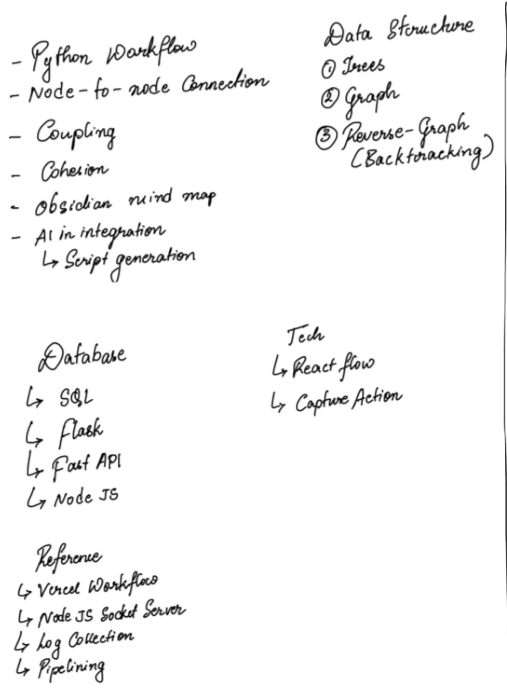 - Python Workflow
- Node-to-node Connection
- Coupling
- Cohesion
- Obsidian mind map
- AI in integration
↳ Script generation
Data Structure
① Trees
② Graph
③ Reverse-Graph
(Backtracking)
Database
↳ SQL
↳ Flask
↳ Fast API
↳ Node JS
Tech
↳ React flow
↳ Capture Action
Reference
↳ Vercel Workflow
↳ Node JS Socket Server
↳ Log Collection
↳ Pipelining